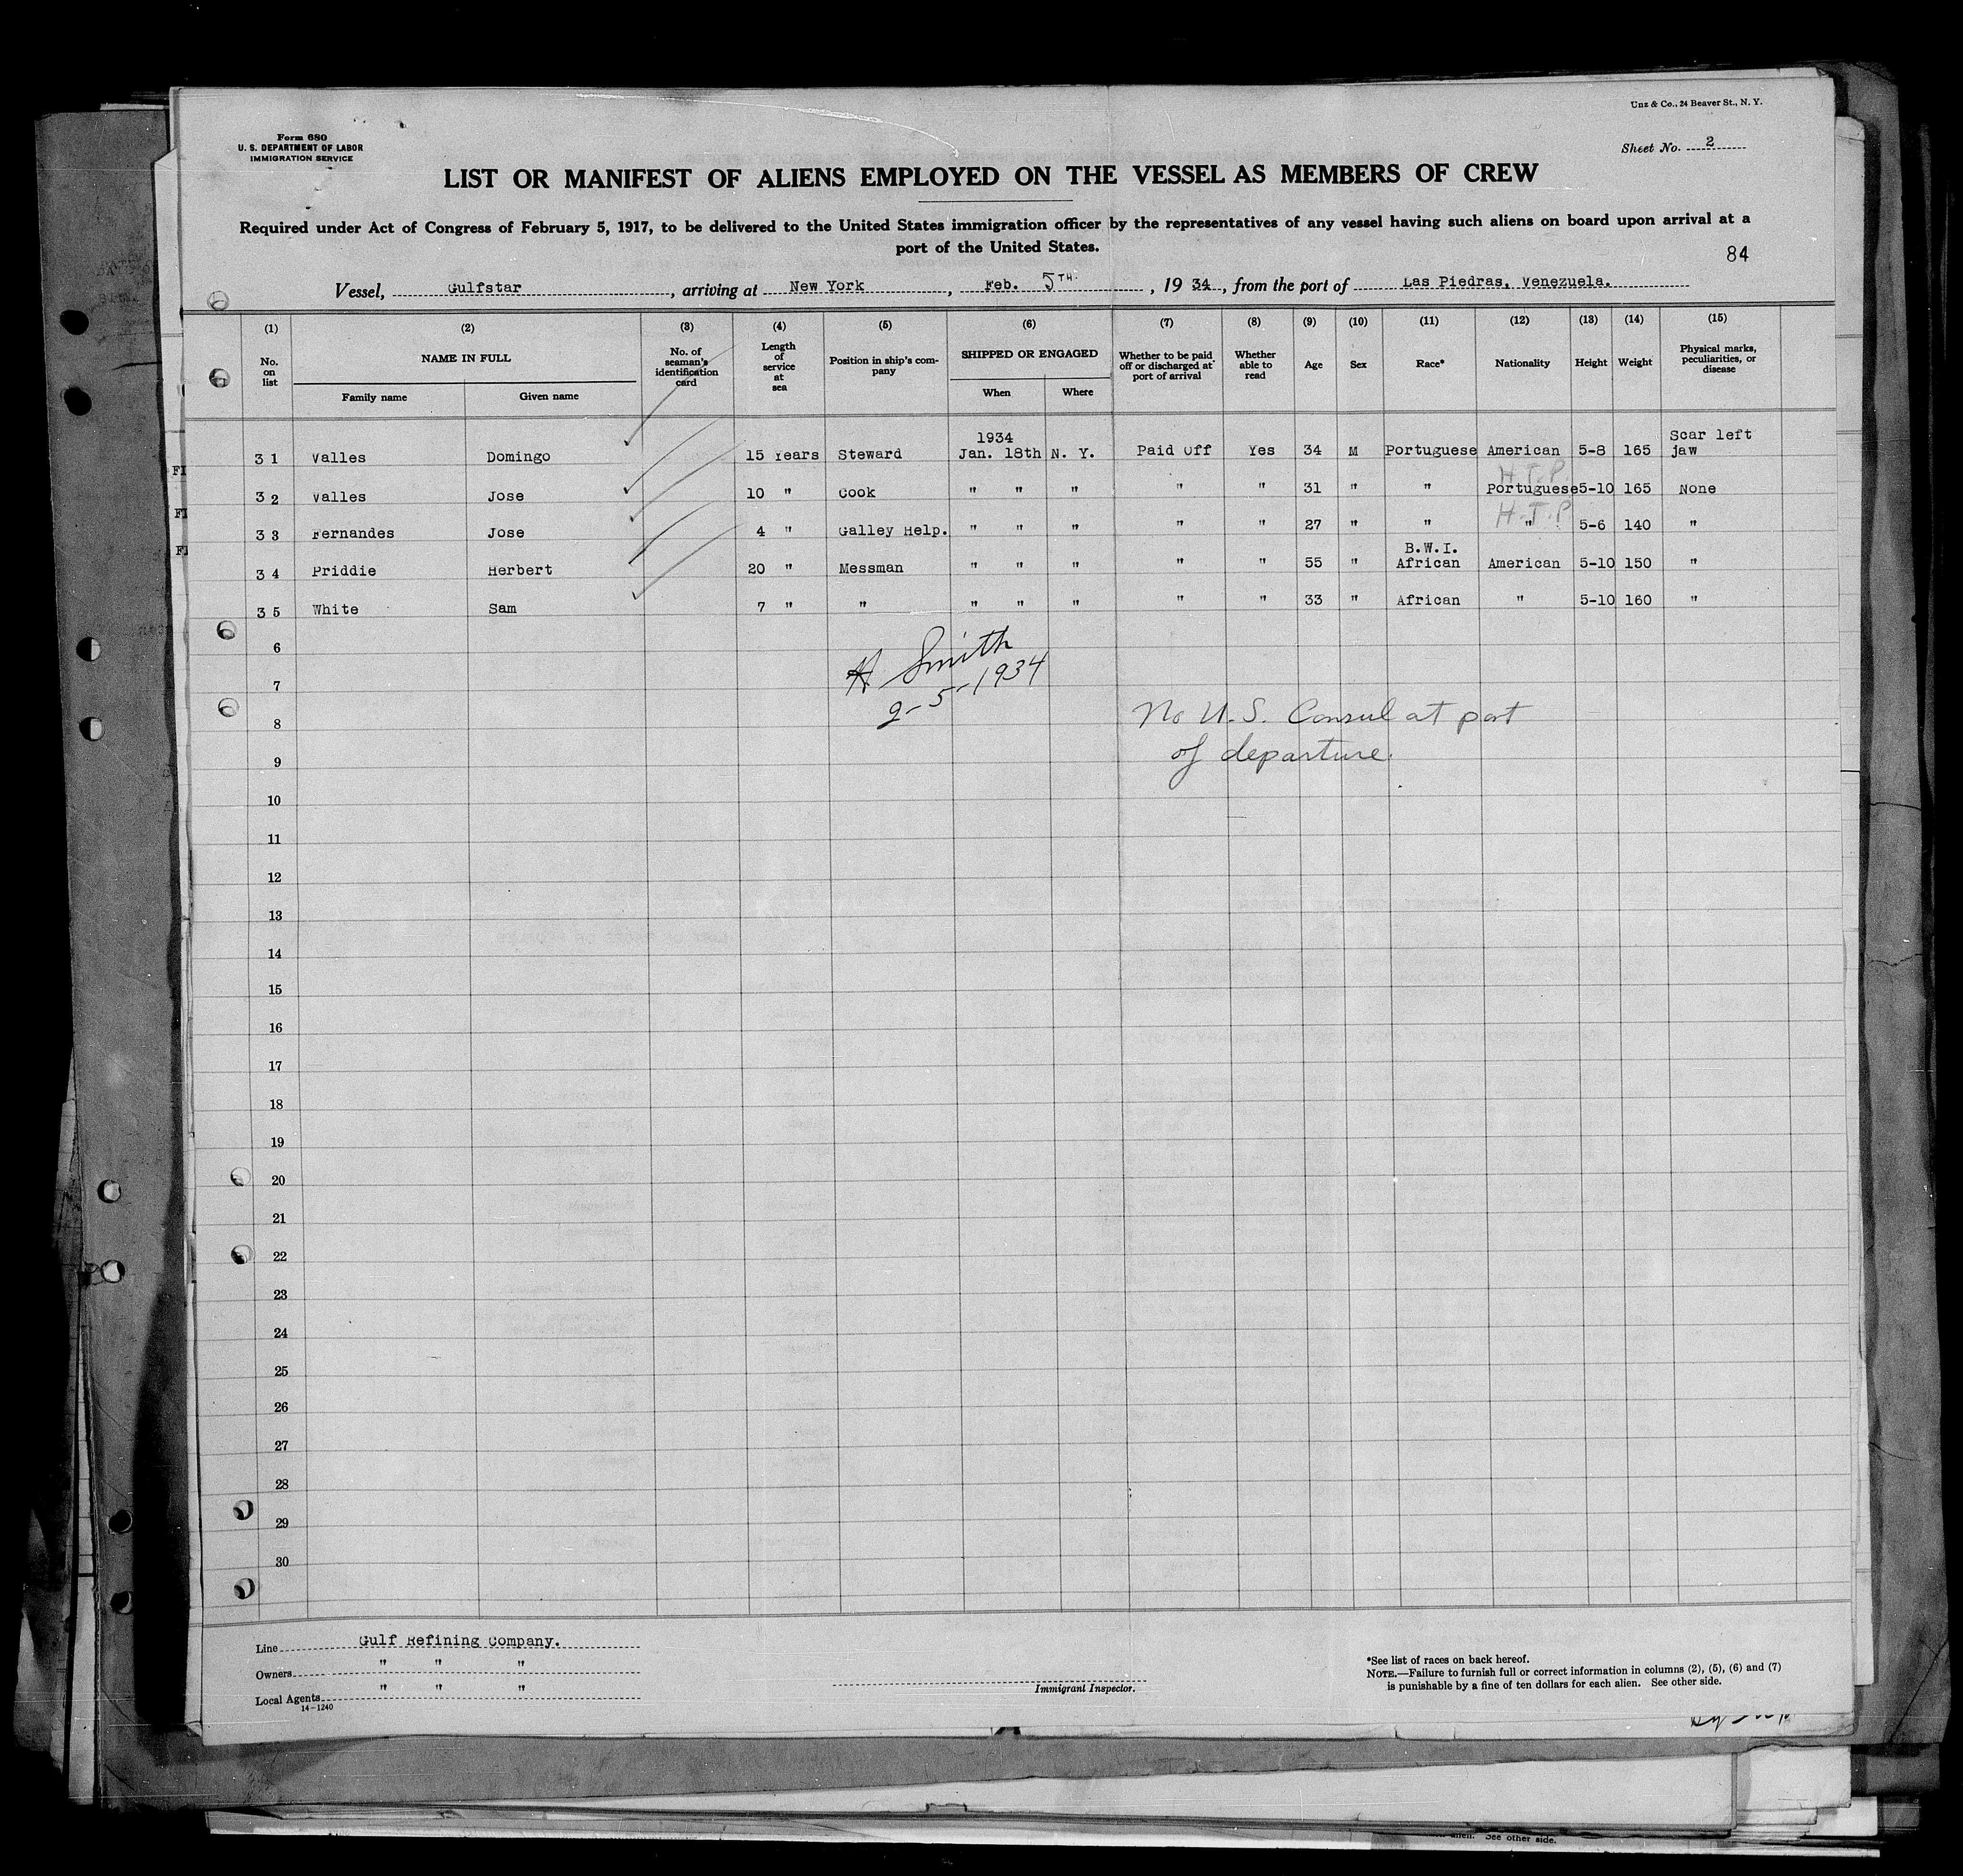 Unz & Co., 24 Beaver St., N. Y.
Form 680
U. S. DEPARTMENT OF LABOR
IMMIGRATION SERVICE
Sheet No. 2
LIST OR MANIFEST OF ALIENS EMPLOYED ON THE VESSEL AS MEMBERS OF CREW
Required under Act of Congress of February 5, 1917, to be delivered to the United States immigration officer by the representatives of any vessel having such aliens on board upon arrival at a
port of the United States.
84
Vessel, Gulfstar, arriving at New York, Feb. 5TH, 1934, from the port of Las Piedras, Venezuela.
(1) (2) (3) (4) (5) (6) (7) (8) (9) (10) (11) (12) (13) (14) (15)
No. on list
NAME IN FULL
Family name Given name
No. of seaman's identification card
Length of service at sea
Position in ship's company
SHIPPED OR ENGAGED
When Where
Whether to be paid off or discharged at port of arrival
Whether able to read
Age
Sex
Race*
Nationality
Height
Weight
Physical marks, peculiarities, or disease
31 Valles Domingo 15 Years Steward 1934 Jan. 18th N. Y. Paid Off Yes 34 M Portuguese American 5-8 165 Scar left jaw
H.T.P
32 Valles Jose 10 " Cook " " " " " 31 " " Portuguese 5-10 165 None
H.T.P
33 Fernandes Jose 4 " Galley Help. " " " " " 27 " " " 5-6 140 "
34 Priddie Herbert 20 " Messman " " " " " 55 " B.W.I. African American 5-10 150 "
35 White Sam 7 " " " " " " " 33 " African " 5-10 160 "
6
H Smith
7
2-5-1934
8
No U.S. Consul at port
9
of departure.
10
11
12
13
14
15
16
17
18
19
20
21
22
23
24
25
26
27
28
29
30
Line Gulf Refining Company.
Owners " " "
Local Agents " " "
14-1240
Immigrant Inspector.
*See list of races on back hereof.
NOTE.—Failure to furnish full or correct information in columns (2), (5), (6) and (7)
is punishable by a fine of ten dollars for each alien. See other side.
alien. See other side.